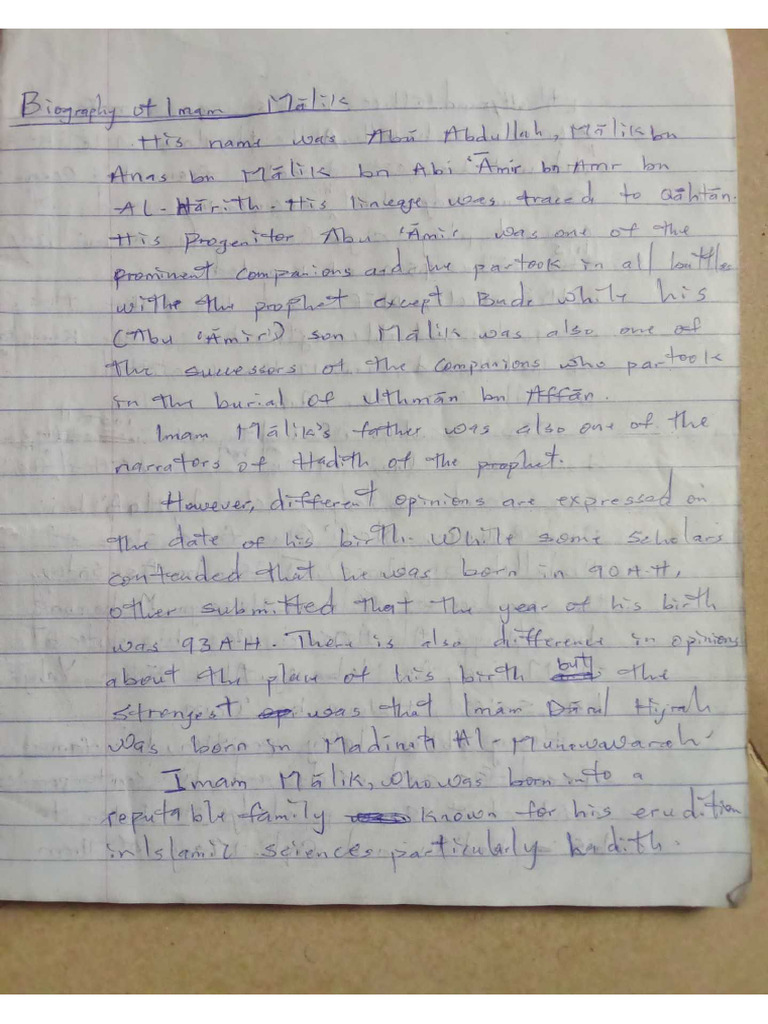 Biography of Imam Mālik
His name was Abū Abdullah, Mālik bn
Anas bn Mālik bn Abi 'Āmir bn Amr bn
Al-Hārith. His linkage was traced to Qāhtān.
His progenitor Abu 'Āmir was one of the
prominent companions and he partook in all battles
withe the prophet except Bade while his
(Abu 'Āmir) son Mālik was also one of
the successors of the companions who partook
in the burial of Uthmān bn Affān.
Imam Mālik's farther was also one of the
narrators of Hadith of the prophet.
However, different opinions are expressed on
the date of his birth. While some scholars
contended that he was born in 90 A.H,
other submitted that the year of his birth
was 93 AH. There is also difference in opinions
about the place of his birth but the
strongest was that Imām Dārul Hijrah
was born in Madinah Al-Munawwarah.
Imam Mālik, who was born into a
reputable family known for his erudition
in Islamic sciences particularly hadith.